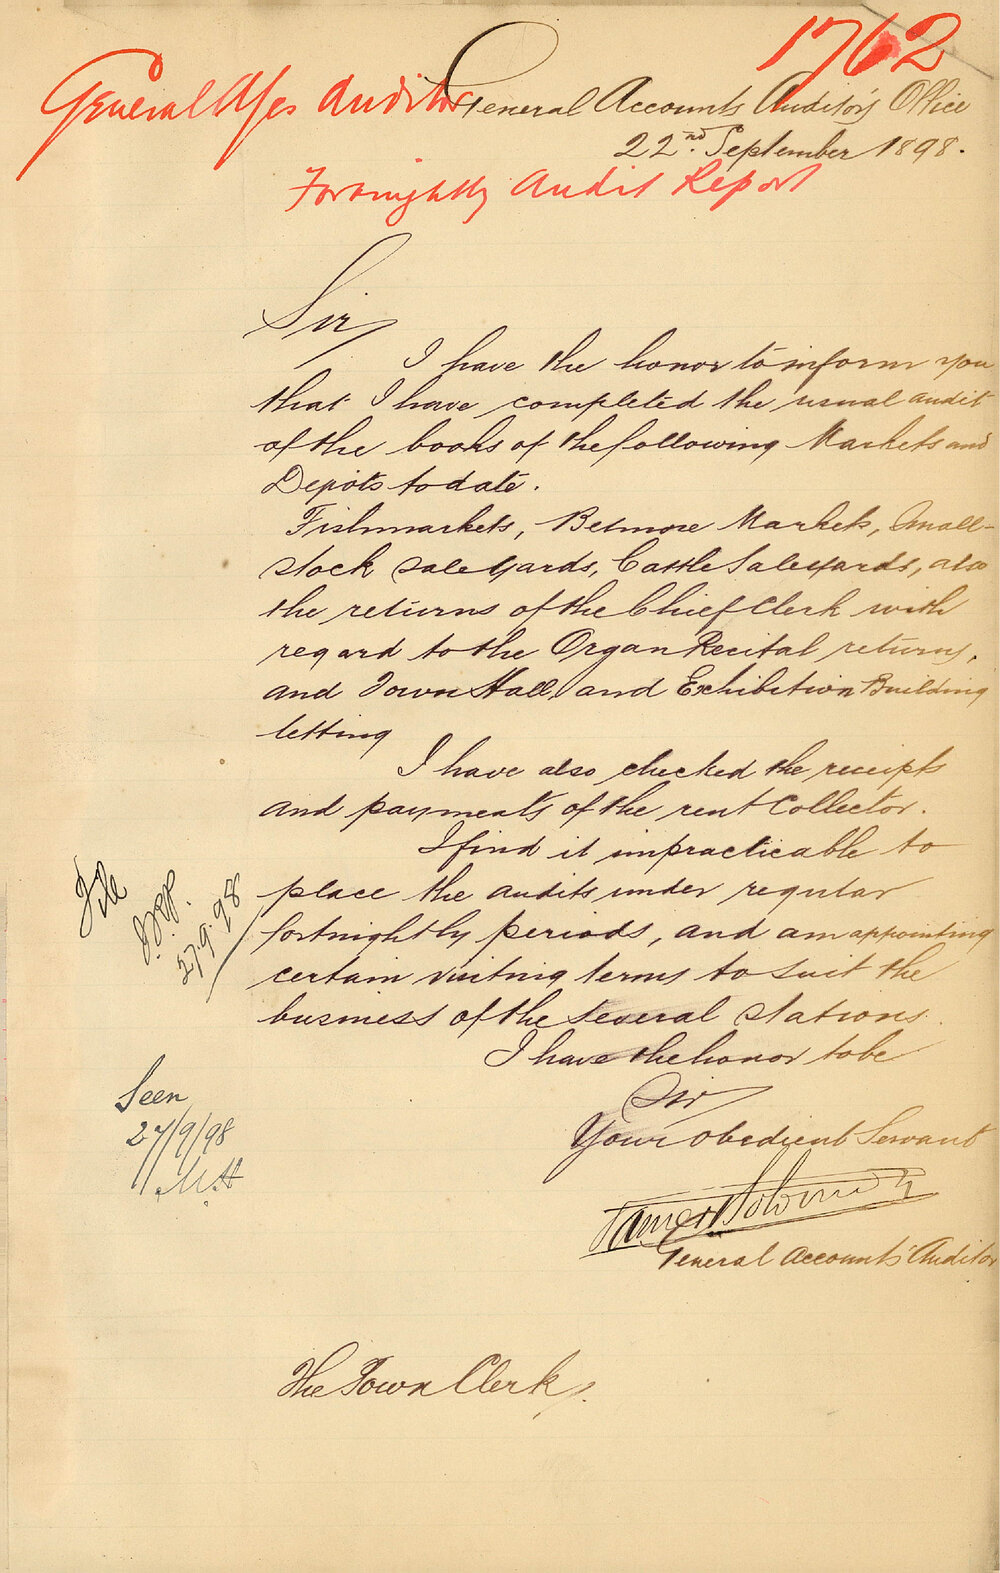 1762
General A/cs Auditor
General Accounts Auditor's Office
22nd September 1898.
Fortnightly Audit Report
Sir,
I have the honor to inform you
that I have completed the usual audit
of the books of the following Markets and
Depôts to date.
Fishmarkets, Belmore Markets, Small-
stock saleyards, Cattle Saleyards, also
the returns of the Chief Clerk with
regard to the Organ Recital returns,
and Town Hall, and Exhibition Building
letting
I have also checked the receipts
and payments of the rent Collector.
I find it impracticable to
place the audits under regular
fortnightly periods, and am appointing
certain visiting terms to suit the
business of the several stations.
I have the honor to be
Sir
Your obedient Servant
James
General Accounts Auditor
File
27.9.98
Seen
27/9/98
The Town Clerk.